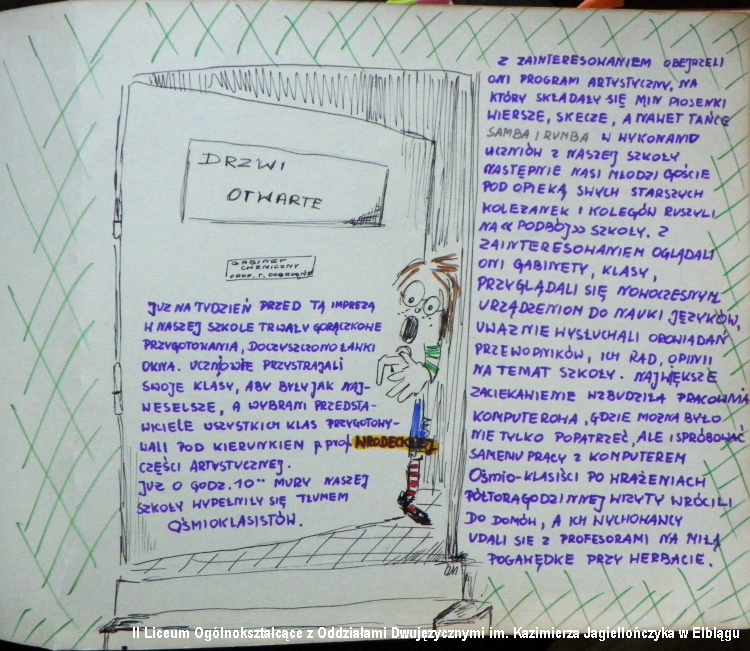 DRZWI
OTWARTE
GABINET
CHEMICZNY
JUŻ NA TYDZIEŃ PRZED TĄ IMPREZĄ
W NASZEJ SZKOLE TRWAŁY GORĄCZKOWE
PRZYGOTOWANIA, DOCZYSZCZONO ŁAWKI
OKNA. UCZNIOWIE PRZYSTRAJALI
SWOJE KLASY, ABY BYŁY JAK NAJ-
WESELSZE, A WYBRANI PRZEDSTA-
WICIELE WSZYSTKICH KLAS PRZYGOTOWY-
WALI POD KIERUNKIEM p. prof. WRODECKIEJ
CZĘŚCI ARTYSTYCZNEJ.
JUŻ O GODZ. 10°° MURY NASZEJ
SZKOŁY WYPEŁNIŁY SIĘ TŁUMEM
OŚMIOKLASISTÓW.
Z ZAINTERESOWANIEM OBEJRZELI
ONI PROGRAM ARTYSTYCZNY, NA
KTÓRY SKŁADAŁY SIĘ MIN PIOSENKI
WIERSZE, SKECZE, A NAWET TAŃCE
SAMBA I RUMBA W WYKONANIU
UCZNIÓW Z NASZEJ SZKOŁY
NASTĘPNIE NASI MŁODZI GOŚCIE
POD OPIEKĄ SWYCH STARSZYCH
KOLEŻANEK I KOLEGÓW RUSZYLI
NA << PODBÓJ >> SZKOŁY. Z
ZAINTERESOWANIEM OGLĄDALI
ONI GABINETY, KLASY,
PRZYGLĄDALI SIĘ NOWOCZESNYM
URZĄDZENIOM DO NAUKI JĘZYKÓW,
UWAŻNIE WYSŁUCHALI OPOWIADAŃ
PRZEWODNIKÓW, ICH RAD, OPINII
NA TEMAT SZKOŁY. NAJWIĘKSZE
ZACIEKAWIENIE WZBUDZIŁA PRACOWNIA
KOMPUTEROWA, GDZIE MOŻNA BYŁO
NIE TYLKO POPATRZEĆ, ALE I SPRÓBOWAĆ
SAMEMU PRACY Z KOMPUTEREM
OŚMIO-KLASIŚCI PO WRAŻENIACH
PÓŁTORAGODZINNEJ WIZYTY WRÓCILI
DO DOMÓW, A ICH WYCHOWAWCY
UDALI SIĘ Z PROFESORAMI NA MIŁĄ
POGAWĘDKĘ PRZY HERBACIE.
II Liceum Ogólnokształcące z Oddziałami Dwujęzycznymi im. Kazimierza Jagiellończyka w Elblągu